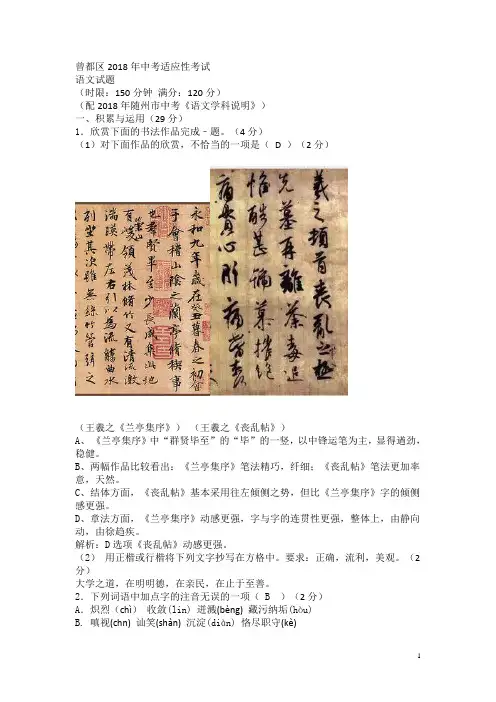 曾都区2018年中考适应性考试
语文试题
(时限：150分钟 满分：120分)
(配2018年随州市中考《语文学科说明》)
一、积累与运用(29分)
1．欣赏下面的书法作品完成﹣题。(4分)
(1)对下面作品的欣赏，不恰当的一项是（ D ）(2分)
永和九年歲在癸丑暮春之初會
于會稽山陰之蘭亭脩禊事
也羣賢畢至少長咸集此地
有崇山峻領茂林脩竹又有清流激
湍暎帶左右引以為流觴曲水
列坐其次雖無絲竹管弦之
羲之頓首喪亂之極
先墓再離荼毒追
惟酷甚號慕摧絕
痛貫心肝痛當奈
(王羲之《兰亭集序》) (王羲之《丧乱帖》)
A、《兰亭集序》中“群贤毕至”的“毕”的一竖，以中锋运笔为主，显得遒劲，
稳健。
B、两幅作品比较看出：《兰亭集序》笔法精巧，纤细；《丧乱帖》笔法更加率
意，天然。
C、结体方面，《丧乱帖》基本采用往左倾侧之势，但比《兰亭集序》字的倾侧
感更强。
D、章法方面，《兰亭集序》动感更强，字与字的连贯性更强，整体上，由静向
动，由徐趋疾。
解析：D选项《丧乱帖》动感更强。
(2) 用正楷或行楷将下列文字抄写在方格中。要求：正确，流利，美观。(2
分)
大学之道，在明明德，在亲民，在止于至善。
2．下列词语中加点字的注音无误的一项( B )(2分)
A．炽烈(chì) 收敛(lin) 迸溅(bèng) 藏污纳垢(hòu)
B. 嗔视(chn) 讪笑(shàn) 沉淀(diàn) 恪尽职守(kè)
1